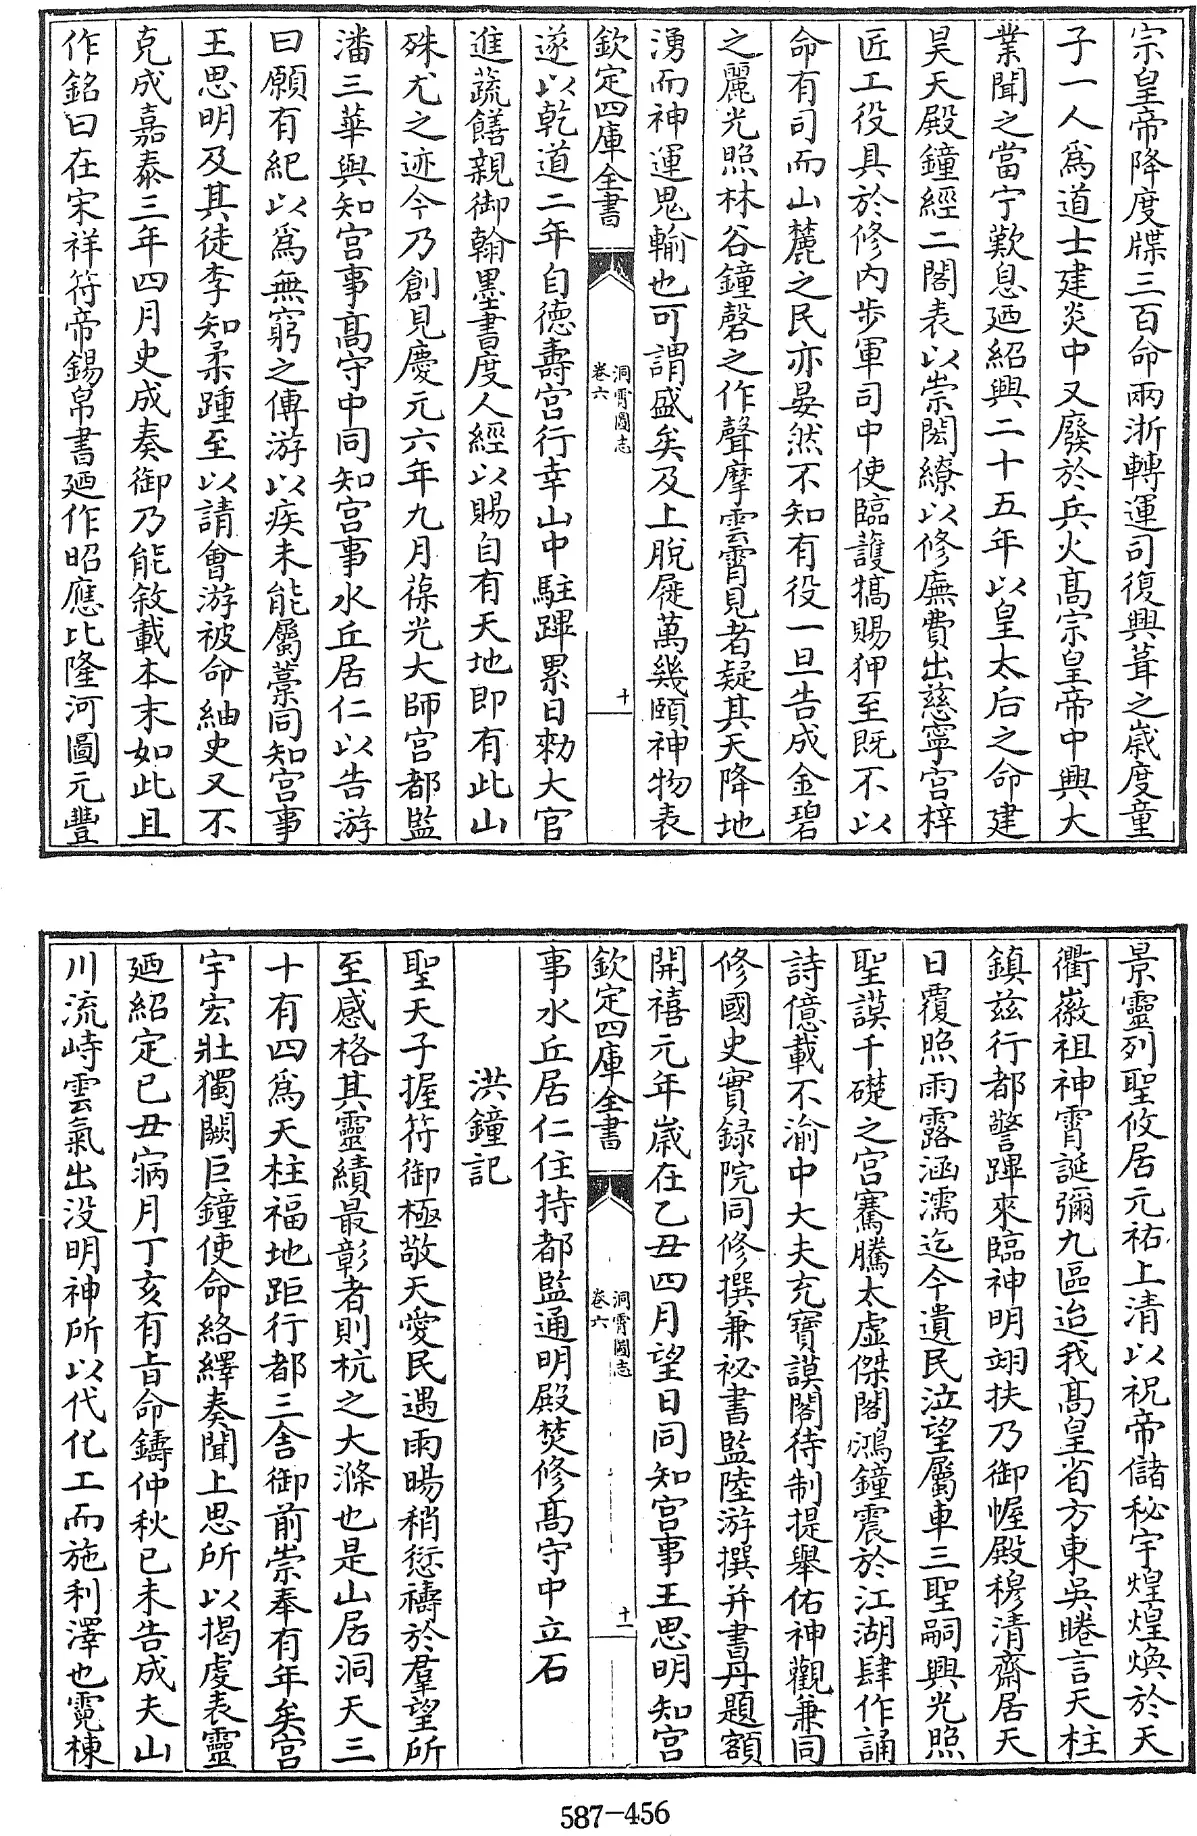 宗皇帝降度牒三百命兩浙轉運司復興葺之歲度童
子一人爲道士建炎中又廢於兵火髙宗皇帝中興大
業聞之當宁歎息廼紹興二十五年以皇太后之命建
昊天殿鐘經二閣表以崇閎繚以修廡費出慈寧宮梓
匠工役具於修內步軍司中使臨護犒賜狎至既不以
命有司而山麓之民亦晏然不知有役一旦告成金碧
之麗光照林谷鐘磬之作聲摩雲霄見者疑其天降地
湧而神運鬼輸也可謂盛矣及上脫屣萬幾頤神物表
欽定四庫全書
洞霄圖志
卷六
十
遂以乾道二年自德壽宮行幸山中駐蹕累日勑大官
進蔬饍親御翰墨書度人經以賜自有天地即有此山
殊尤之迹今乃創見慶元六年九月葆光大師宮都監
潘三華與知宮事髙守中同知宮事水丘居仁以告游
曰願有紀以爲無窮之傳游以疾未能屬藁同知宮事
王思明及其徒李知柔踵至以請會游被命紬史又不
克成嘉泰三年四月史成奏御乃能敘載本末如此且
作銘曰在宋祥符帝錫帛書廼作昭應比隆河圖元豐
景靈列聖攸居元祐上清以祝帝儲秘宇煌煌煥於天
衢徽祖神霄誕彌九區迨我髙皇省方東吳睠言天柱
鎮兹行都警蹕來臨神明翊扶乃御幄殿穆清齋居天
日覆照雨露涵濡迄今遺民泣望屬車三聖嗣興光照
聖謨千礎之宮騫騰太虛傑閣鴻鐘震於江湖肆作誦
詩億載不渝中大夫充寶謨閣待制提舉佑神觀兼同
修國史實録院同修撰兼祕書監陸游撰并書丹題額
開禧元年歲在乙丑四月望日同知宮事王思明知宮
欽定四庫全書
洞霄圖志
卷六
十一
事水丘居仁住持都監通明殿焚修髙守中立石
洪鐘記
聖天子握符御極敬天愛民遇雨暘稍愆禱於羣望所
至感格其靈績最彰者則杭之大滌也是山居洞天三
十有四爲天柱福地距行都三舍御前崇奉有年矣宮
宇宏壯獨闕巨鐘使命絡繹奏聞上思所以揭虔表靈
廼紹定已丑寎月丁亥有旨命鑄仲秋已未告成夫山
川流峙雲氣出没明神所以代化工而施利澤也霓棟
587-456